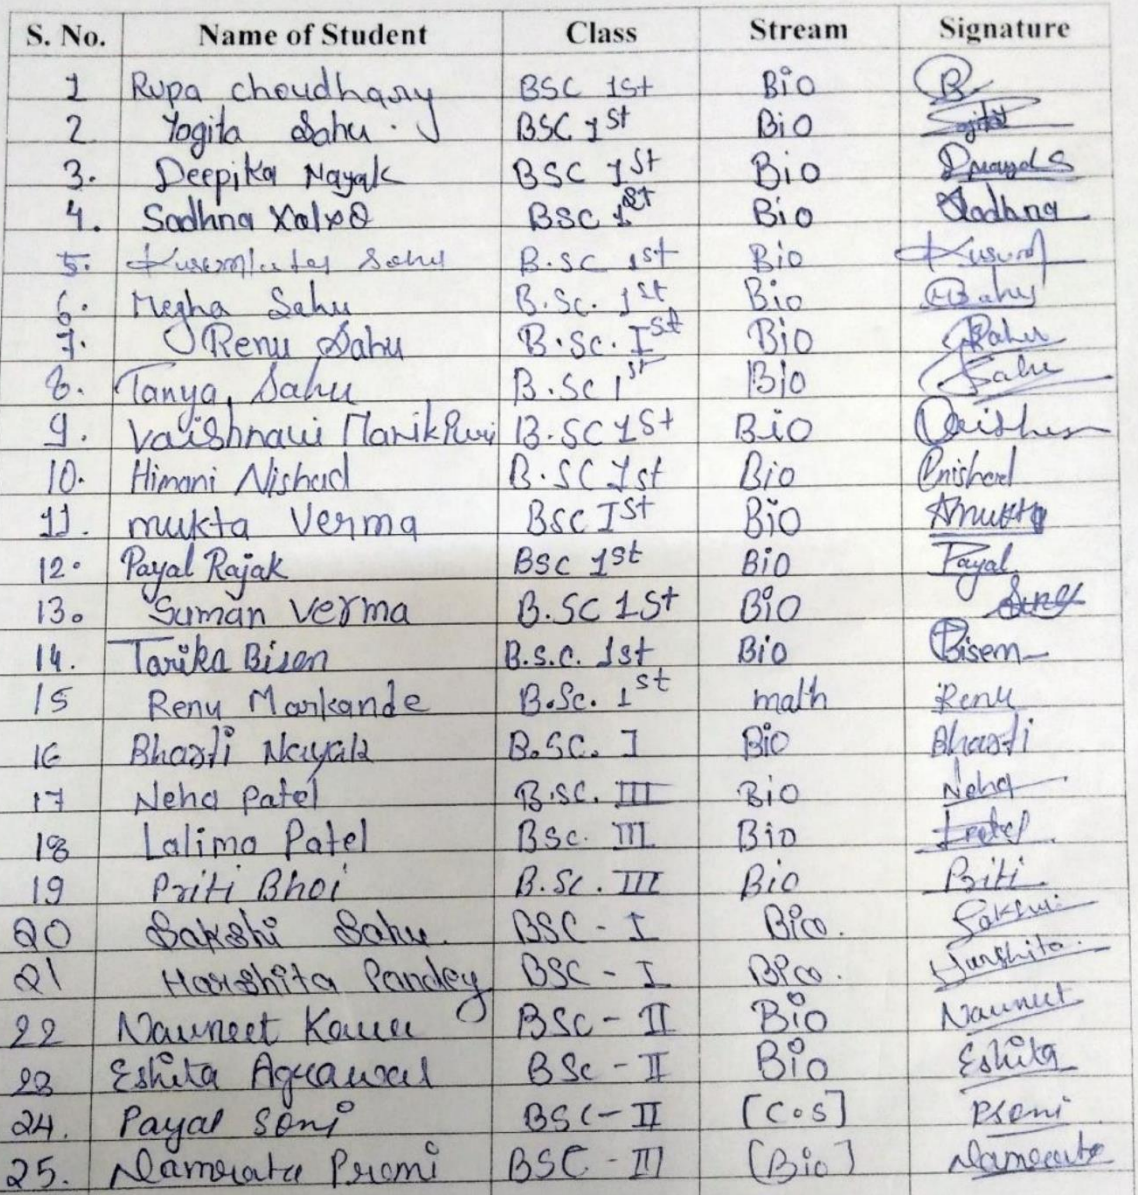 S. No. Name of Student Class Stream Signature
1 Rupa choudhary BSC 1st Bio R
2 Yogita Sahu. BSC 1st Bio
3. Deepika Nayak BSC 1st Bio
4. Sadhna Xalxo BSC 1st Bio Sadhna
5. Kusumlata Sahu B.SC 1st Bio Kusum
6. Megha Sahu B.Sc. 1st Bio
7. Renu Sahu B.Sc. Ist Bio
8. Tanya Sahu B.Sc 1st Bio Sahu
9. Vaishnavi Manikpuri B.SC 1st Bio
10. Himani Nishad B.SC 1st Bio
11. mukta Verma BSC Ist Bio
12. Payal Rajak BSC 1st Bio Payal
13. Suman Verma B.SC 1st Bio
14. Tarika Bisen B.S.C. 1st Bio Bisen
15 Renu Markande B.Sc. 1st math Renu
16 Bharti Nayak B.SC. I Bio Bharti
17 Neha Patel B.SC. III Bio Neha
18 Lalima Patel BSC. III Bio
19 Priti Bhoi B.Sc. III Bio Priti
20 Sakshi Sahu. BSC - I Bio. Sakshi
21 Harshita Pandey BSC - I Bio. Harshita.
22 Navneet Kaur BSC - II Bio Navneet
23 Eshita Agrawal BSc - II Bio Eshita
24. Payal Soni BSC - II [C.S] PSoni
25. Namrata Premi BSC - III [Bio] Namrata